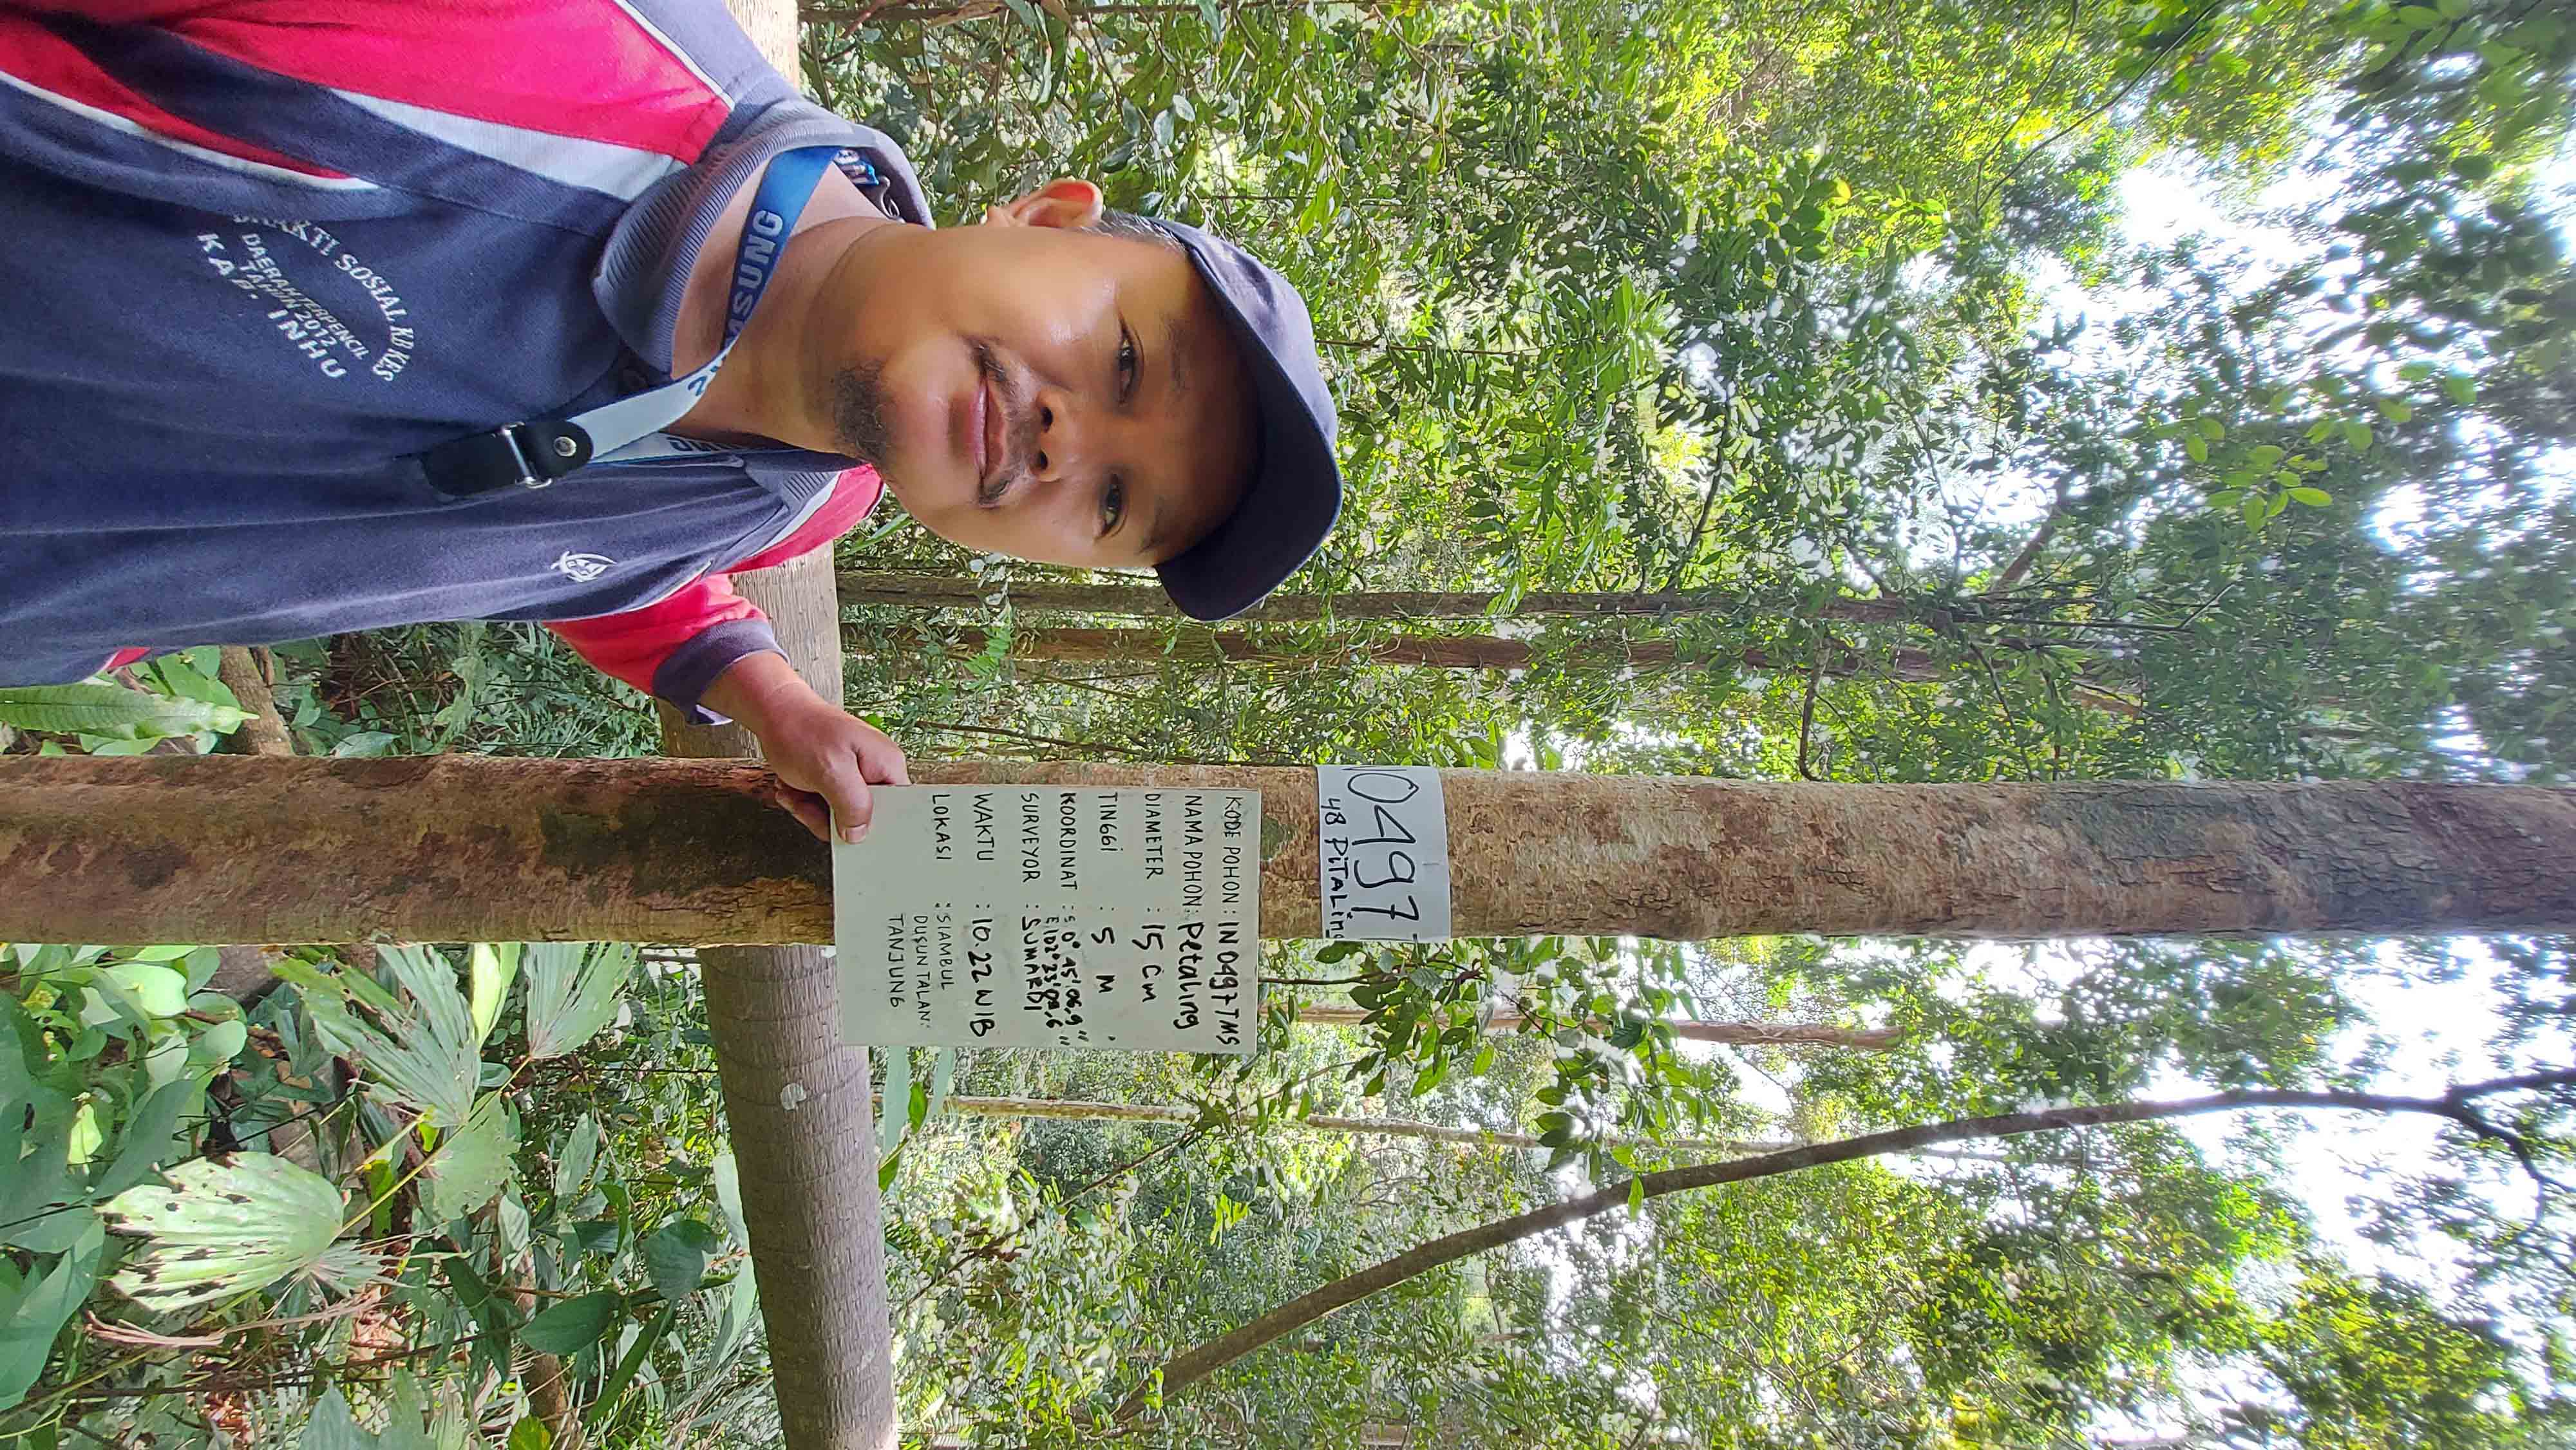 N0497
48 PiTALing
KODE POHON : IN 0497 TMS
NAMA POHON : Petaling
DIAMETER : 15 cm
TINGGI : 5 M
KOORDINAT : S 0° 45' 06,9"
E 102° 23' 09,6"
SURVEYOR : SUMARDI
WAKTU : 10.22 WIB
LOKASI : SIAMBUL
DUSUN TALAN
TANJUNG
SAMSUNG
SOSIAL KB KES
DAERAH TERPENCIL
TAHUN 2012
KAB. INHU